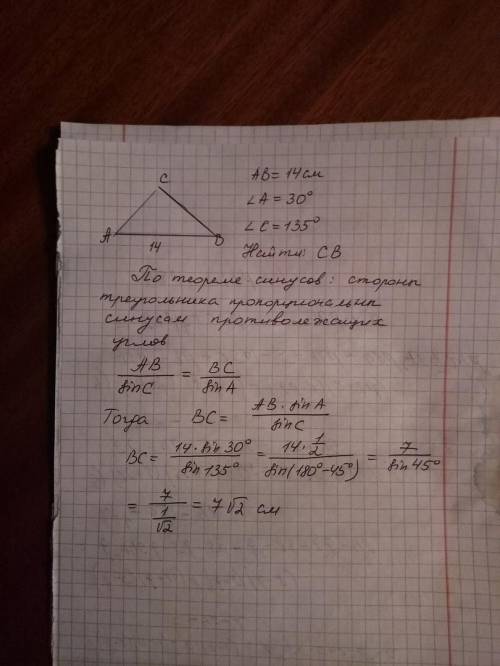 C
A
14
B
AB = 14 см
∠A = 30°
∠C = 135°
Найти: CB
По теореме синусов: стороны
треугольника пропорциональны
синусам противолежащих
углов
AB/sinC = BC/sinA
Тогда BC = AB · sinA/sinC
BC = 14 · sin30°/sin135° = 14 · 1/2/sin(180°-45°) = 7/sin45°
= 7/1/√2 = 7√2 см